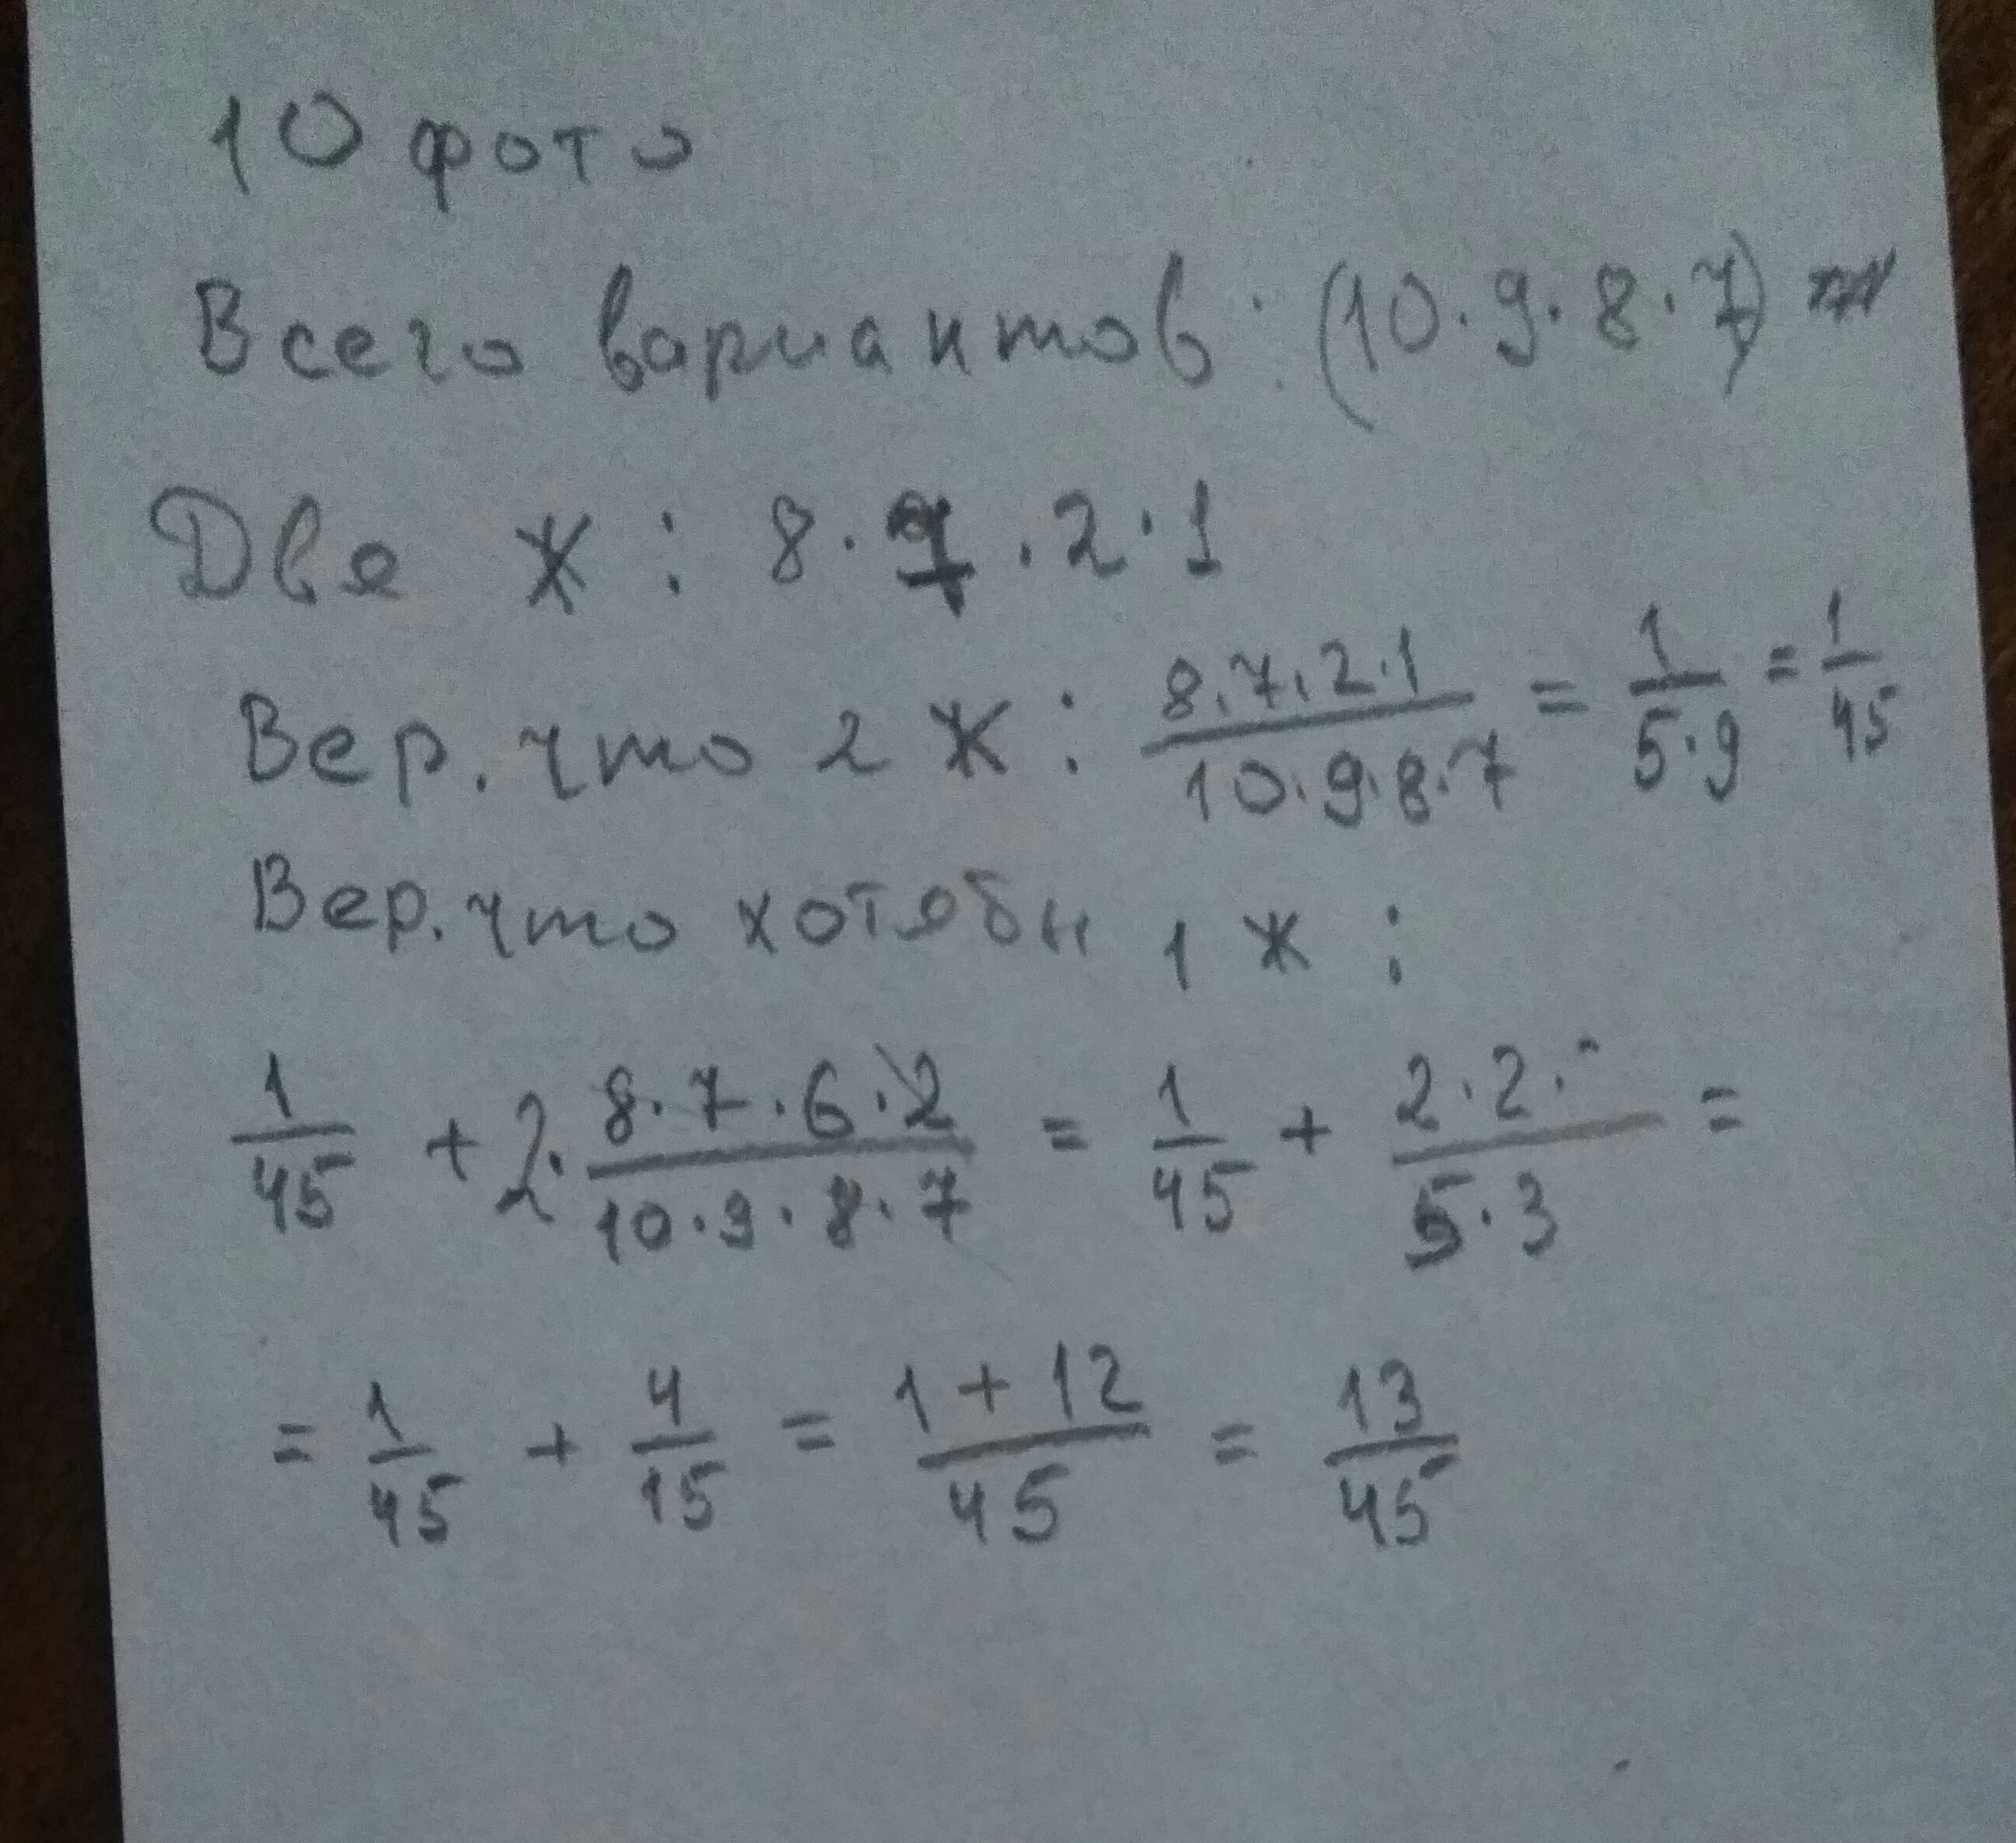 10 фото
Всего вариантов: (10·9·8·7)
Две ж: 8·7·2·1
Вер. что 2 ж: 8·7·2·1/10·9·8·7 = 1/5·9 = 1/45
Вер. что хотябы 1 ж:
1/45 + 2·8·7·6·2/10·9·8·7 = 1/45 + 2·2·/5·3 =
= 1/45 + 4/15 = 1+12/45 = 13/45